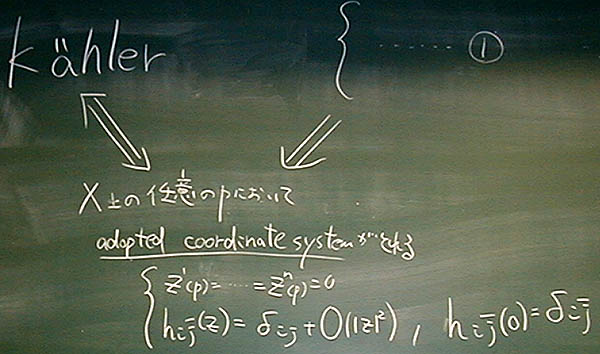 Kähler
{ ········ ①
X上の任意のpにおいて
adopted coordinate systemがとれる
{ z¹(p)=······=zⁿ(p)=0
h_{ij̄}(z)=δ_{ij}+O(|z|²), h_{ij̄}(0)=δ_{ij̄}